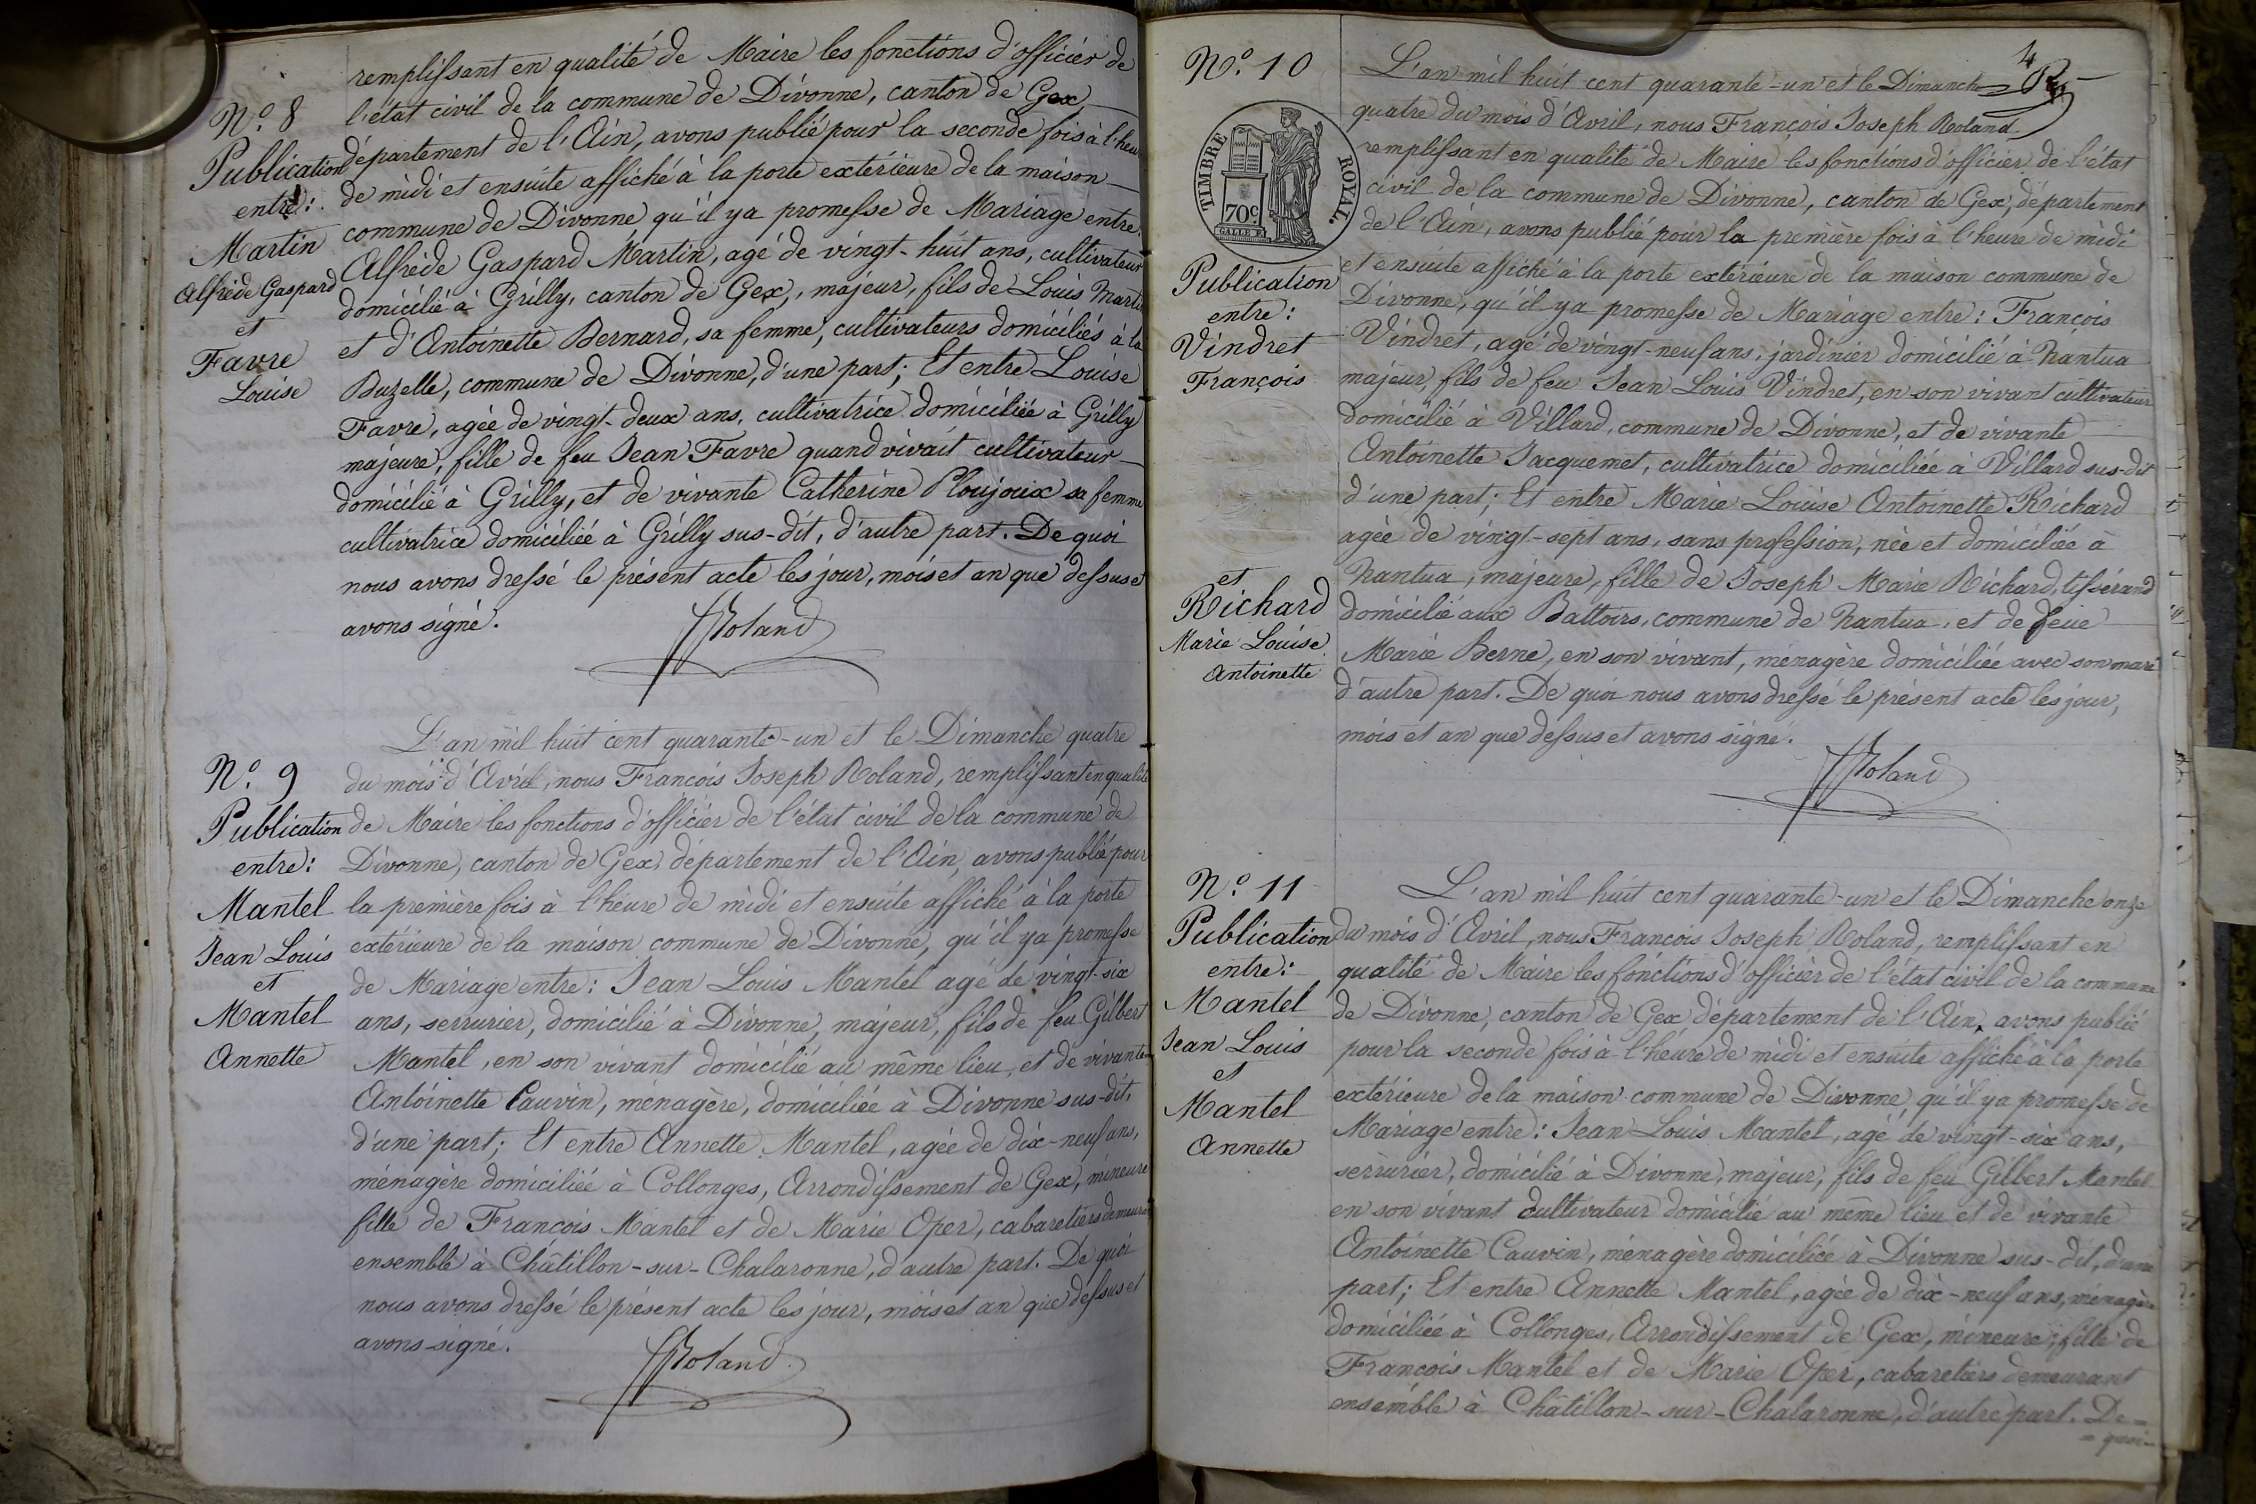 remplissant en qualité de Maire les fonctions d'officier de
N.º 8
l'état civil de la commune de Divonne, canton de Gex,
Publication
département de l'Ain, avons publié pour la seconde fois à l'heu
entre:
de midi et ensuite affiché à la porte extérieure de la maison
Martin
commune de Divonne qu'il y a promesse de Mariage entre
Alfrède Gaspard
Alfrède Gaspard Martin, agé de vingt-huit ans, cultivateur
et
domicilié à Grilly, canton de Gex, majeur, fils de Louis Marti
Favre
et d'Antoinette Bernard, sa femme, cultivateurs domiciliés à la
Louise
Buzelle, commune de Divonne, d'une part; Et entre Louise
Favre, agée de vingt-deux ans, cultivatrice domiciliée à Grilly
majeure, fille de feu Jean Favre quand vivait cultivateur
domicilié à Grilly, et de vivante Catherine Ploujoux sa femme
cultivatrice domiciliée à Grilly sus-dit, d'autre part. De quoi
nous avons dressé le présent acte les jour, mois et an que dessus et
avons signé.
Roland
L'an mil huit cent quarante-un et le Dimanche quatre
N.º 9
du mois d'Avril, nous François Joseph Roland, remplissant en qualité
Publication
de Maire les fonctions d'officier de l'état civil de la commune de
entre:
Divonne, canton de Gex, département de l'Ain, avons publié pour
Mantel
la première fois à l'heure de midi et ensuite affiché à la porte
Jean Louis
extérieure de la maison commune de Divonne, qu'il y a promesse
et
de Mariage entre: Jean Louis Mantel agé de vingt-six
Mantel
ans, serrurier, domicilié à Divonne, majeur, fils de feu Gilbert
Annette
Mantel, en son vivant domicilié au même lieu, et de vivante
Antoinette Cauvin, ménagère, domiciliée à Divonne sus-dit,
d'une part; Et entre Annette Mantel, agée de dix-neuf ans,
ménagère domiciliée à Collonges, Arrondissement de Gex, mineure
fille de François Mantel et de Marie Oper, cabaretiers demeurant
ensemble à Châtillon-sur-Chalaronne, d'autre part. De quoi
nous avons dressé le présent acte les jour, mois et an que dessus et
avons signé.
Roland
4
N.º 10
L'an mil huit cent quarante-un et le Dimanche
quatre du mois d'Avril, nous François Joseph Roland
TIMBRE ROYAL.
70c.
remplissant en qualité de Maire les fonctions d'officier de l'état
civil de la commune de Divonne, canton de Gex, département
de l'Ain, avons publié pour la première fois à l'heure de midi
Publication
et ensuite affiché à la porte extérieure de la maison commune de
entre:
Divonne, qu'il y a promesse de Mariage entre: François
Vindret
Vindret, agé de vingt-neuf ans, jardinier domicilié à Nantua
François
majeur, fils de feu Jean Louis Vindret, en son vivant cultivateur
domicilié à Villard, commune de Divonne, et de vivante
Antoinette Jacquemet, cultivatrice domiciliée à Villard sus-dit
d'une part; Et entre Marie Louise Antoinette Richard
agée de vingt-sept ans, sans profession, née et domiciliée à
et
Nantua, majeure, fille de Joseph Marie Richard, tissérand
Richard
domicilié aux Battoirs, commune de Nantua, et de feue
Marie Louise
Marie Berne, en son vivant, ménagère domiciliée avec son mari
Antoinette
d'autre part. De quoi nous avons dressé le présent acte les jour,
mois et an que dessus et avons signé.
Roland
N.º 11
L'an mil huit cent quarante-un et le Dimanche onze
Publication
du mois d'Avril, nous François Joseph Roland, remplissant en
entre:
qualité de Maire les fonctions d'officier de l'état civil de la commune
Mantel
de Divonne, canton de Gex département de l'Ain, avons publié
Jean Louis
pour la seconde fois à l'heure de midi et ensuite affiché à la porte
et
extérieure de la maison commune de Divonne, qu'il y a promesse de
Mantel
Mariage entre: Jean Louis Mantel, agé de vingt-six ans,
Annette
serrurier, domicilié à Divonne, majeur, fils de feu Gilbert Mantel
en son vivant cultivateur domicilié au même lieu et de vivante
Antoinette Cauvin, ménagère domiciliée à Divonne sus-dit, d'une
part; Et entre Annette Mantel, agée de dix-neuf ans, ménagère
domiciliée à Collonges, Arrondissement de Gex, mineure, fille de
François Mantel et de Marie Oper, cabaretiers demeurant
ensemble à Châtillon-sur-Chalaronne, d'autre part. De=
= quoi=